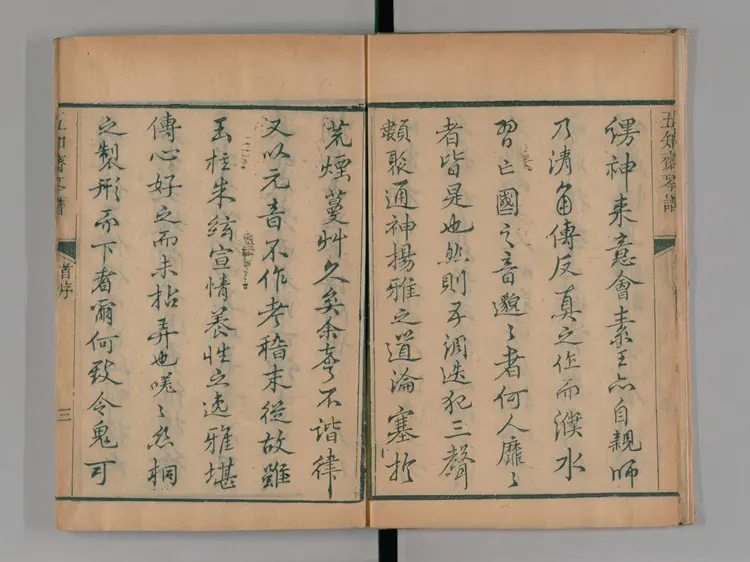 五知齋琴譜
得神來意會素王亦自親師
乃清角傳反真之作而濮水
習亡國之音邈々者何人靡々
者皆是也然則平調迭犯三聲
類聚通神揚雅之道淪塞於
荒煙蔓艸久矣余耄不諧律
又以元音不作考稽末從故雖
玉柱朱絃宣情養性之逸雅堪
傳心好之而未拈弄也嘆々絲桐
之製形而下者爾何致令鬼可
五知齋琴譜
首序
三